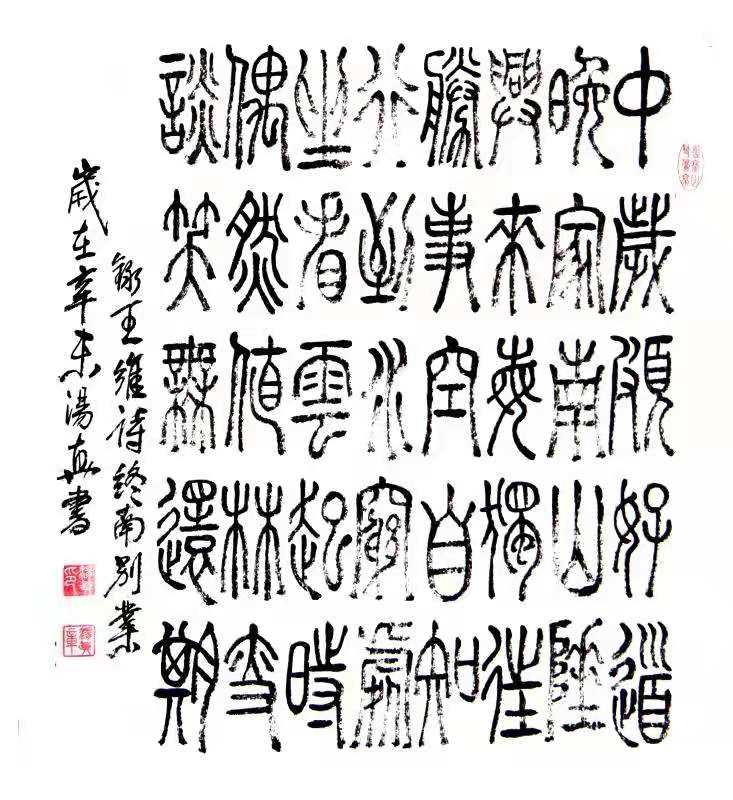 中歲頗好道
晚家南山陲
興來每獨往
勝事空自知
行到水窮處
坐看雲起時
偶然值林叟
談笑無還期
錄王維詩終南別業
歲在辛未湯真書